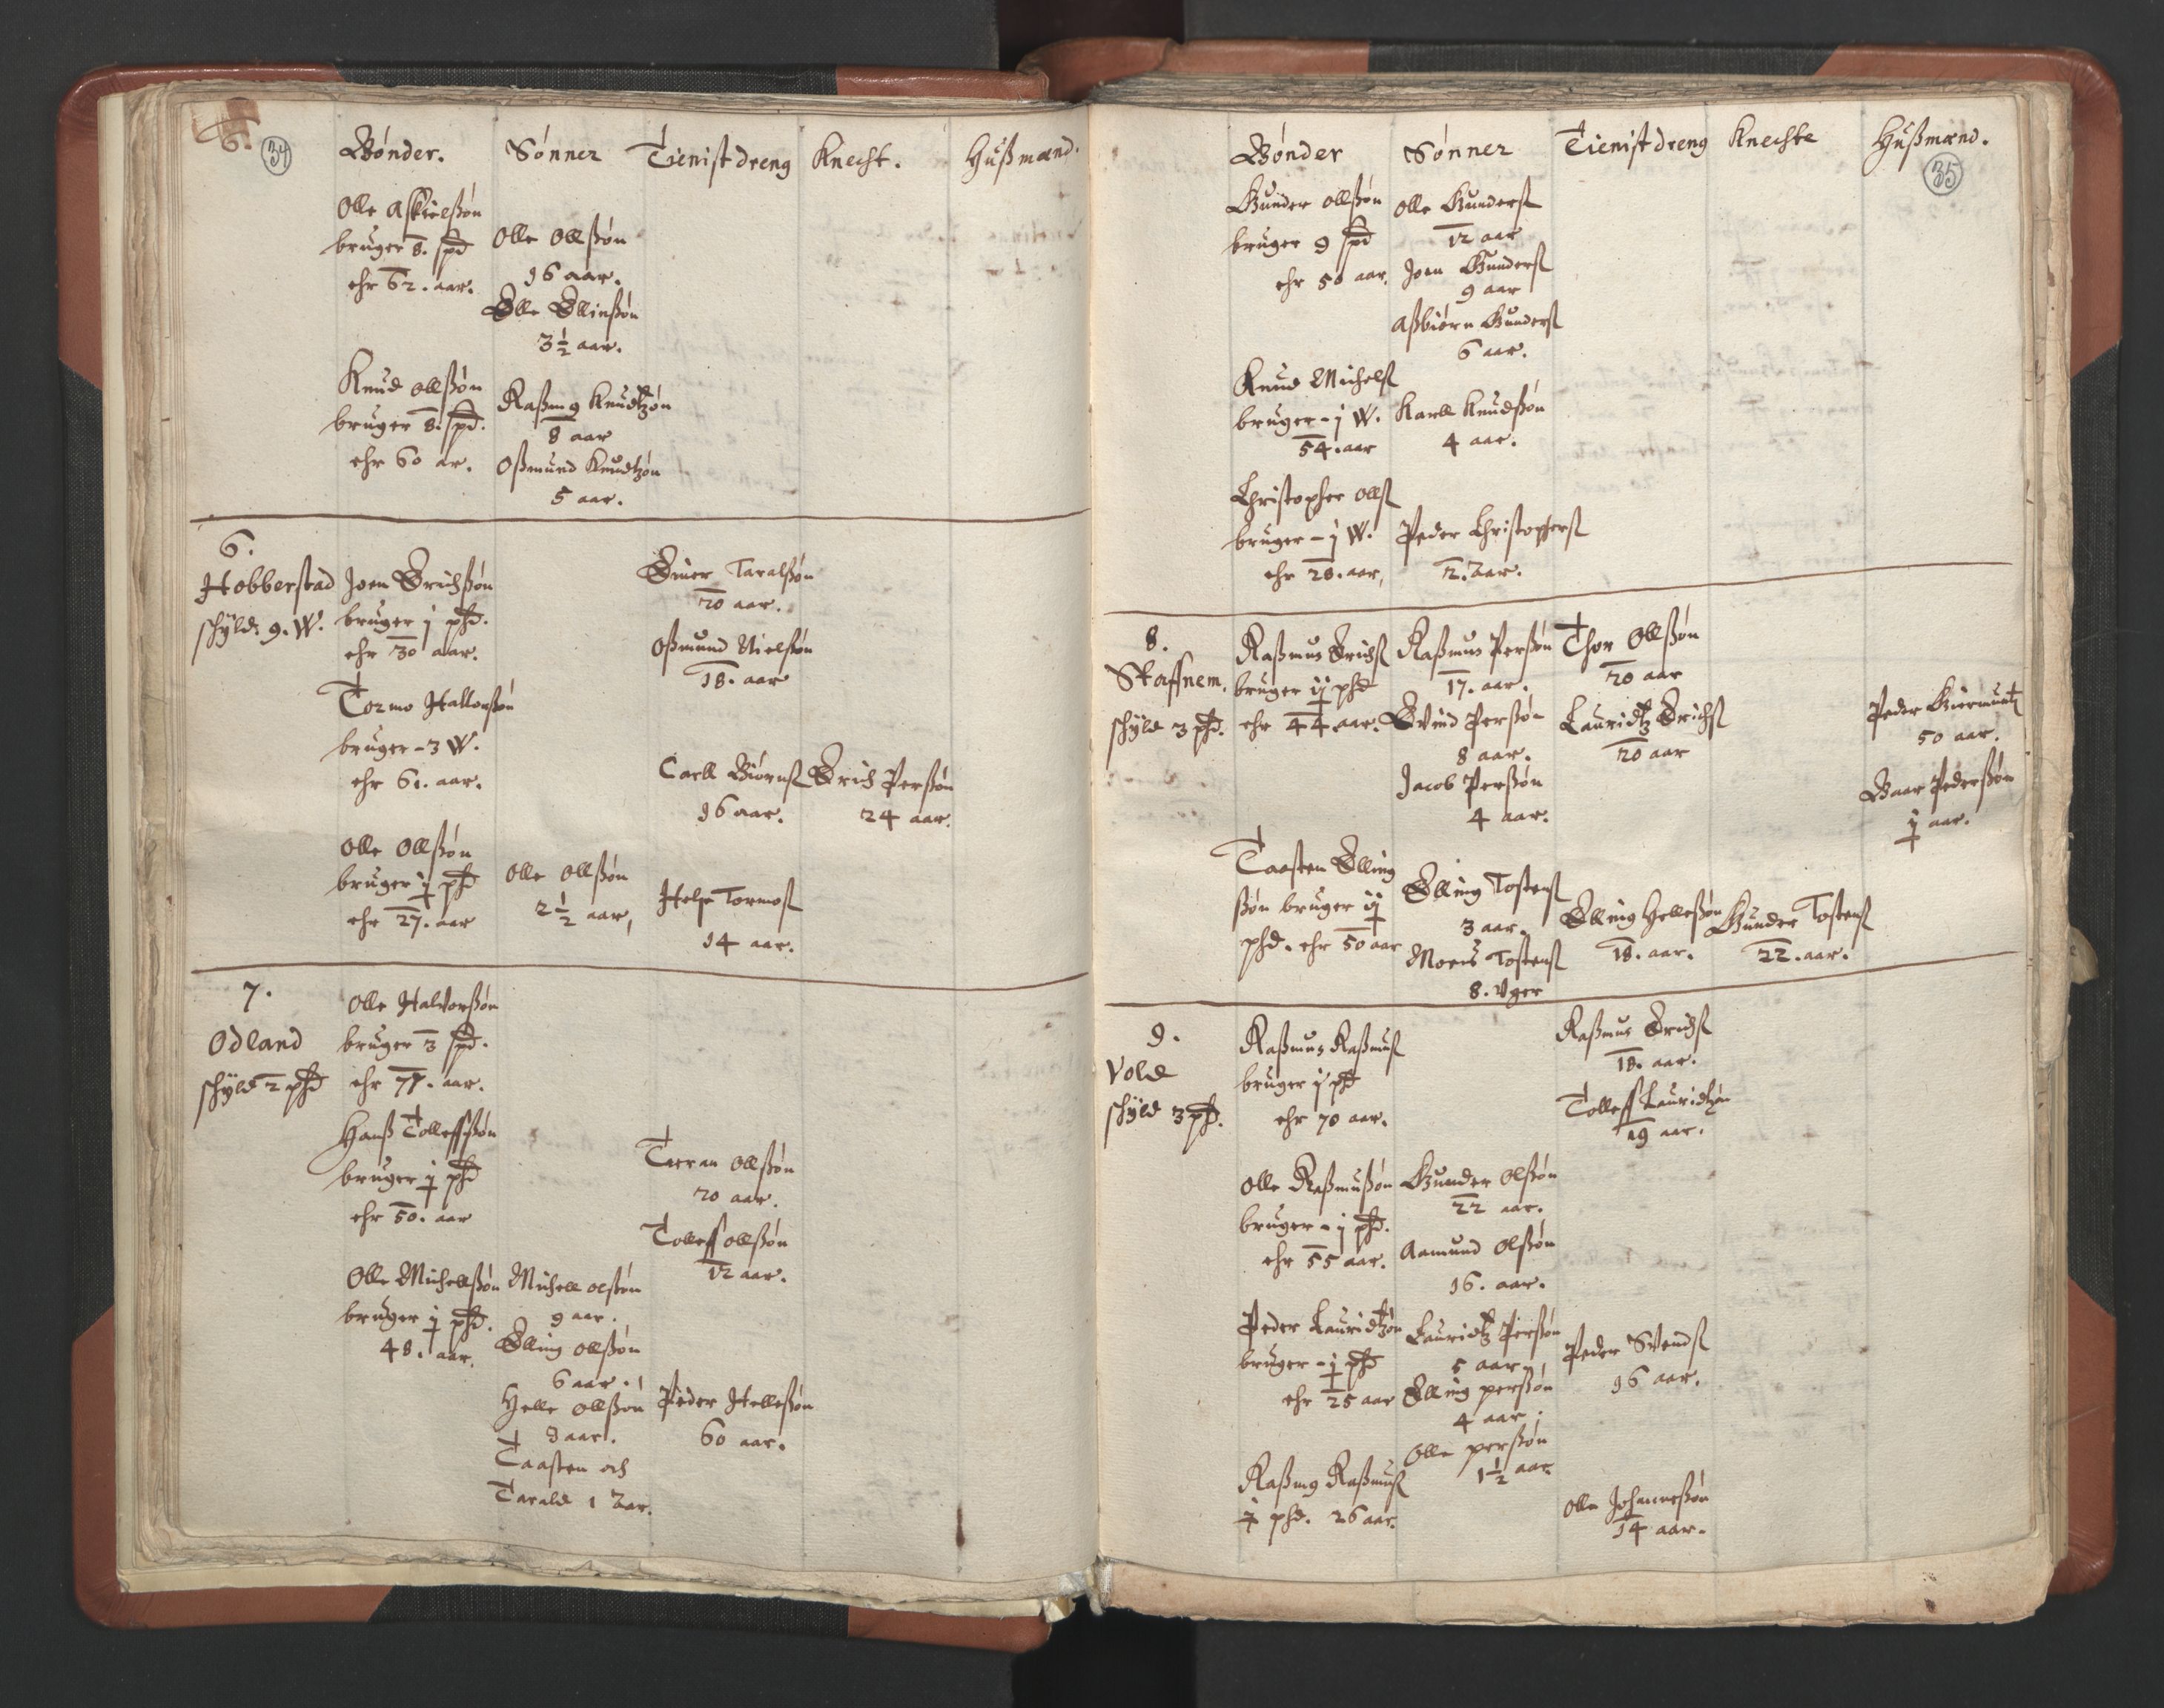 6.
34
Bönder. Sönner Tienistdreng Knecht. Hußmænd.
Olle Aßkielßön
bruger 8. spd
ehr 62. aar.
Olle Ollßön
16 aar.
Elle Ellinßön
3½ aar.
Knud Ollßön
bruger 8. spd.
ehr 60 ar.
Raßmg Knudtzön
8 aar
Oßmund Knudtzön
5 aar.
6.
Hobberstad
schyld: 9. W.
Joen Erichßön
bruger j phd.
ehr 30 aar.
Einer Taralßön
20 aar.
Oßmund Nielßön
18. aar
Tormo Halvorßön
bruger - 3 W.
ehr 61. aar.
Carll Biörnß
16 aar.
Erich Perßön
24 aar.
Olle Ollßön
bruger j phd
ehr 27. aar
Olle Ollßön
2½ aar,
Helje Tormoß
14 aar.
7.
Odland
schyld 2 phd
Olle Halvorßön
bruger 3 spd.
ehr 77. aar.
Hanß Tolleffßön
bruger j phd
ehr 50. aar
Tarran Ollßön
20 aar.
Tolleff Ollßön
12 aar.
Olle Michellßön
bruger j phd.
48. aar.
Michell Olßön
9 aar.
Elling Ollßön
6 aar.
Helle Ollßön
3 aar.
Taasten och
Tarald 1 2 aar.
Peder Helleßön
60 aar.
35
Bönder Sönner Tienistdreng Knechte Hußmænd.
Gunder Ollßön
bruger 9 spd
ehr 50 aar.
Olle Gunderß
12 aar
Joen Gunderß
9 aar
Aßbiörn Gunderß
6 aar.
Knud Michelß
bruger - j W.
54. aar
Karll Knudßön
4 aar.
Christopher Ollß
bruger - j W.
ehr 28. aar,
Peder Christopherß
2. aar.
8.
Staffnem.
schyld 3 phd.
Raßmus Erichß
bruger ij phd
ehr 44. aar.
Raßmus Perßön
17. aar.
Evind Perßön
8 aar.
Jacob Perßön
4 aar.
Thor Ollßön
20 aar
Lauridtz Erichß
20 aar
Peder
50 aar.
Baar Pederßön
j aar.
Taasten Elling
ßön bruger ij
phd. ehr 50 aar
Elling Tostenß
3 aar.
Moris Tostenß
8. Vger
Elling Helleßön
18. aar.
Gunder Tostenß
22. aar.
9.
Vold
schyld 3 phd.
Raßmus Raßmuß
bruger j phd
ehr 70 aar.
Raßmus Erichß
18. aar.
Tolleff Lauridtzön
19 aar.
Olle Raßmußön
bruger - j phd.
ehr 55 aar.
Gunder Olßön
22 aar.
Aamund Olßön
16. aar.
Peder Lauridtzön
bruger - j phd
ehr 25 aar
Lauridtz Perßön
5 aar
Elling perßön
4 aar.
Olle perßön
1½ aar
Peder Svendß
16 aar.
Raßmg Raßmuß
j phd. 26 aar.
Olle Johannßön
14 aar.